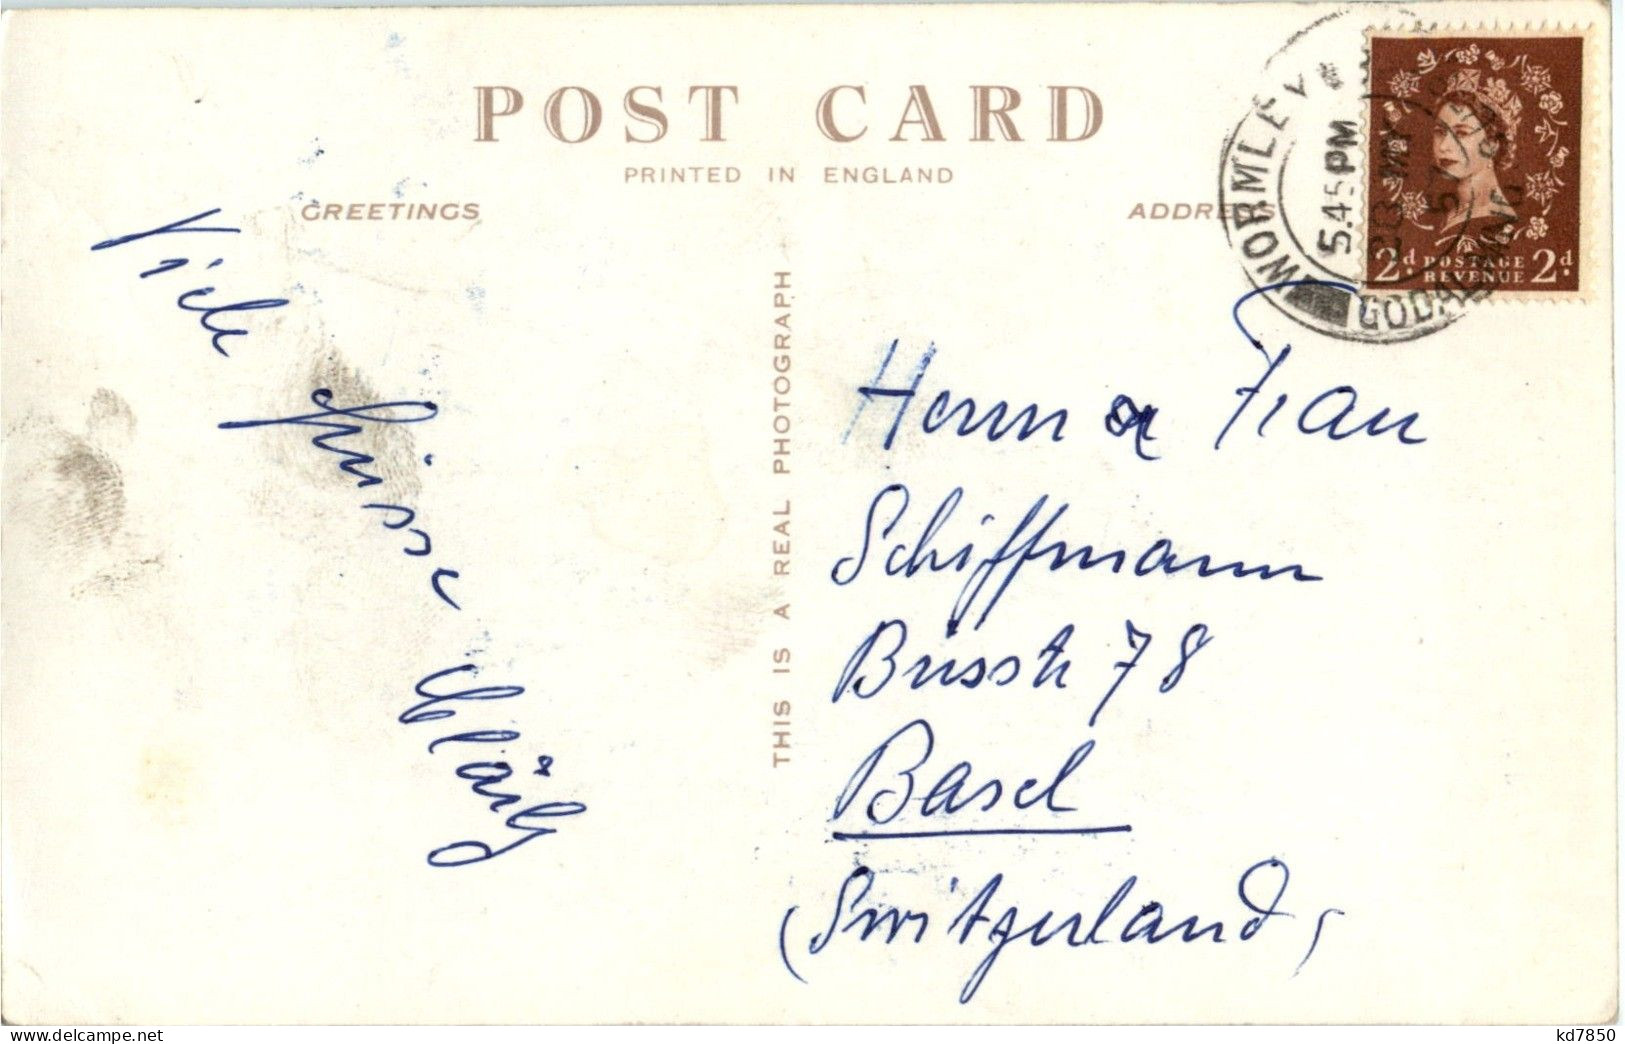 POST CARD
PRINTED IN ENGLAND
GREETINGS
ADDRE
THIS IS A REAL PHOTOGRAPH
WORMLEY
GODALMING
5.45 PM
MY
57
2d POSTAGE 2d
REVENUE
Viele
Grüsse
Herrn & Frau
Schiffmann
78
Basel
(Switzerland)
kd7850